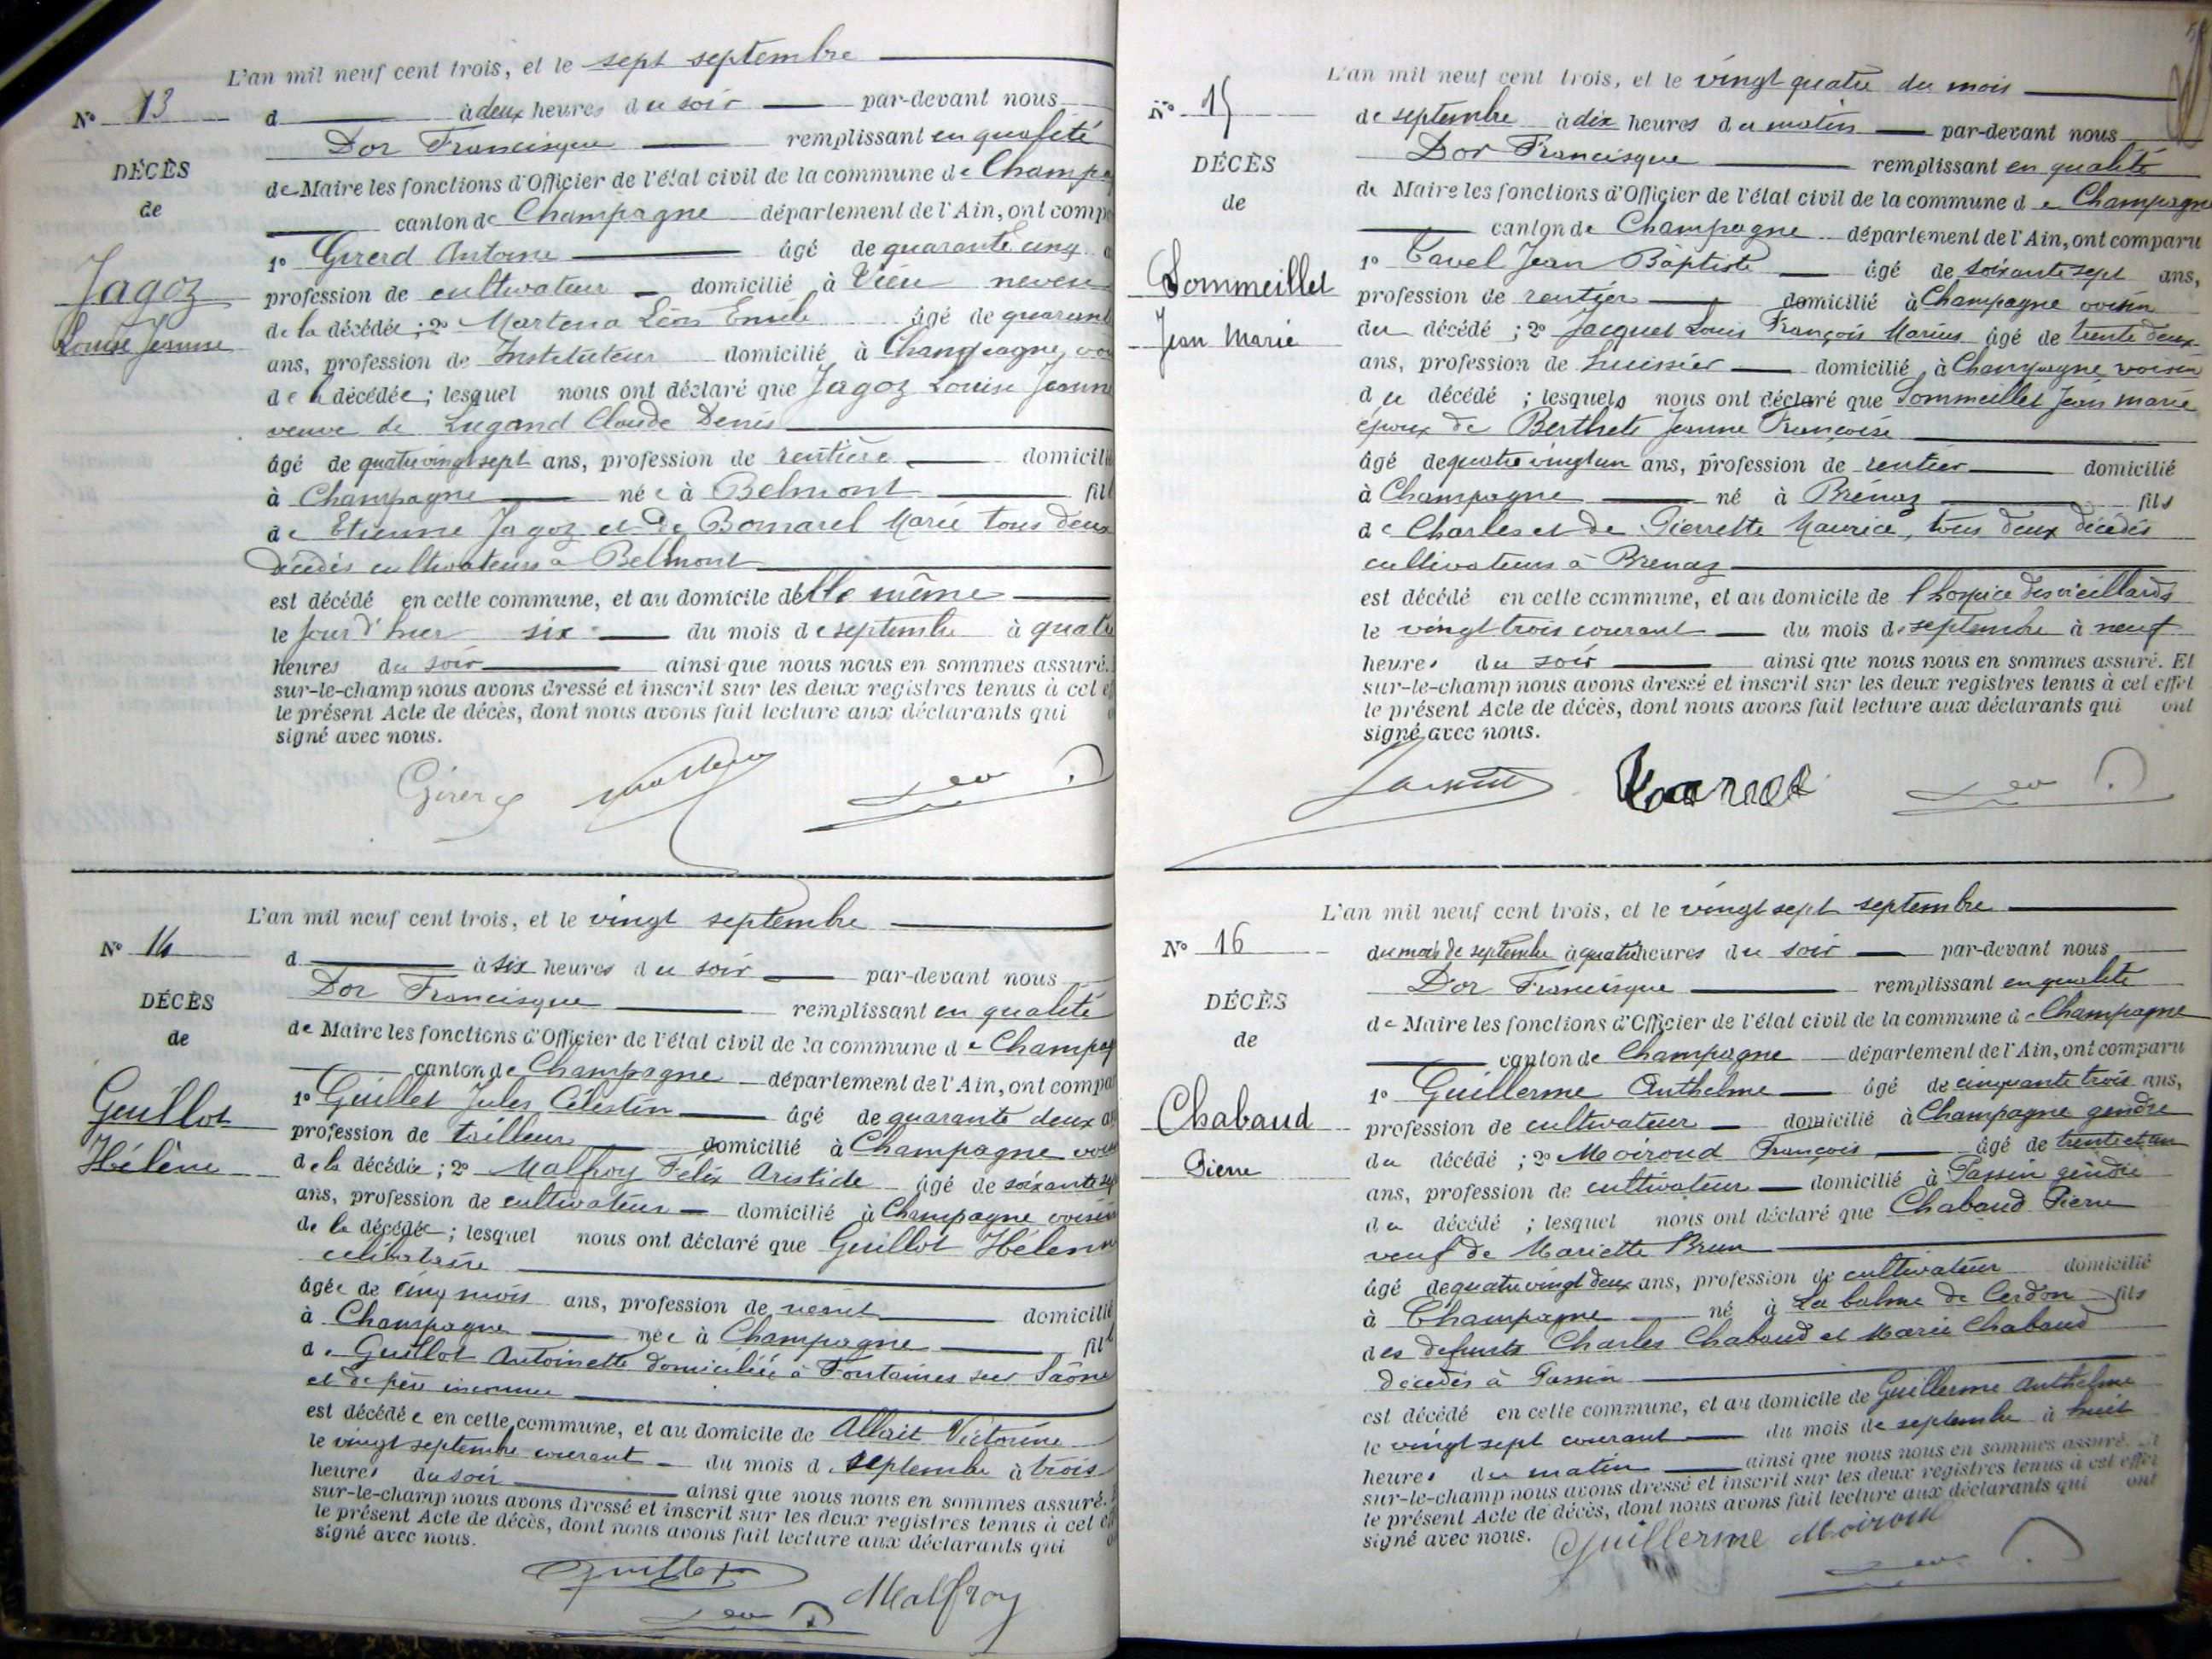 L'an mil neuf cent trois, et le sept septembre
N° 13
d à deux heures du soir par-devant nous
Dor Francisque remplissant en qualité
DÉCÈS
de Maire les fonctions d'Officier de l'état civil de la commune de Champa
de
canton de Champagne département de l'Ain, ont compa
Jagoz
Louise Jeanne
1° Girerd Antoine âgé de quarante cinq
profession de cultivateur domicilié à Vieu neveu
de la décédée ; 2° Léon Emile âgé de quarant
ans, profession de Instituteur domicilié à Champagne, voi
de la décédée ; lesquel nous ont déclaré que Jagoz Louise Jeanne
veuve de Lugand Claude Denis
âgé de quatrevingt sept ans, profession de rentière domicili
à Champagne née à Belmont fill
de Etienne Jagoz et de Bornarel Marie tous deux
décédés cultivateurs à Belmont
est décédé en cette commune, et au domicile d'elle même
le jour d'hier six du mois de septembre à quatre
heures du soir ainsi que nous nous en sommes assuré.
sur-le-champ nous avons dressé et inscrit sur les deux registres tenus à cet ef
le présent Acte de décès, dont nous avons fait lecture aux déclarants qui
signé avec nous.
Girerd
L'an mil neuf cent trois, et le vingt septembre
N° 14
d à six heures du soir par-devant nous
Dor Francisque remplissant en qualité
DÉCÈS
de Maire les fonctions d'Officier de l'état civil de la commune de Champag
de
canton de Champagne département de l'Ain, ont compa
Guillot
Hélène
1° Guillet Jules Célestin âgé de quarante deux an
profession de tailleur domicilié à Champagne voisin
de la décédée ; 2° Malfroy Félix Aristide âgé de soixante sept
ans, profession de cultivateur domicilié à Champagne voisin
de la décédée ; lesquel nous ont déclaré que Guillot Hélène
célibataire
âgée de cinq mois ans, profession de néant domicilié
à Champagne née à Champagne fill
de Guillot Antoinette domiciliée à Fontaines sur Saône
et de père inconnu
est décédée en cette commune, et au domicile de Allait Victorine
le vingt septembre courant du mois de septembre à trois
heures du soir ainsi que nous nous en sommes assuré.
sur-le-champ nous avons dressé et inscrit sur les deux registres tenus à cet eff
le présent Acte de décès, dont nous avons fait lecture aux déclarants qui
signé avec nous.
Guillet
Malfroy
L'an mil neuf cent trois, et le vingt quatre du mois
N° 15
de septembre à dix heures du matin par-devant nous
Dor Francisque remplissant en qualité
DÉCÈS
de Maire les fonctions d'Officier de l'état civil de la commune de Champagne
de
canton de Champagne département de l'Ain, ont comparu
Sommeillet
Jean Marie
1° Tavel Jean Baptiste âgé de soixante sept ans,
profession de rentier domicilié à Champagne voisin
du décédé ; 2° Jacquet Louis François Marius âgé de trente deux
ans, profession de huissier domicilié à Champagne voisin
du décédé ; lesquels nous ont déclaré que Sommeillet Jean Marie
époux de Berthet Jeanne Françoise
âgé de quatre vingt un ans, profession de rentier domicilié
à Champagne né à Brénaz fils
de Charles et de Pierrette Maurice, tous deux décédés
cultivateurs à Brenaz
est décédé en cette commune, et au domicile de l'hospice des vieillards
le vingt trois courant du mois de septembre à neuf
heures du soir ainsi que nous nous en sommes assuré. Et
sur-le-champ nous avons dressé et inscrit sur les deux registres tenus à cet effet
le présent Acte de décès, dont nous avons fait lecture aux déclarants qui ont
signé avec nous.
L'an mil neuf cent trois, et le vingt sept septembre
N° 16
du mois de septembre à quatre heures du soir par-devant nous
Dor Francisque remplissant en qualité
DÉCÈS
de Maire les fonctions d'Officier de l'état civil de la commune de Champagne
de
canton de Champagne département de l'Ain, ont comparu
Chabaud
Pierre
1° Guillerme Anthelme âgé de cinquante trois ans,
profession de cultivateur domicilié à Champagne gendre
du décédé ; 2° Moiroud François âgé de trente et un
ans, profession de cultivateur domicilié à Passin gendre
du décédé ; lesquel nous ont déclaré que Chabaud Pierre
veuf de Mariette Brun
âgé de quatre vingt deux ans, profession de cultivateur domicilié
à Champagne né à La balme de Cerdon fils
des defunts Charles Chabaud et Marie Chabaud
décédés à Passin
est décédé en cette commune, et au domicile de Guillerme Anthelme
le vingt sept courant du mois de septembre à huit
heures du matin ainsi que nous nous en sommes assuré. Et
sur-le-champ nous avons dressé et inscrit sur les deux registres tenus à cet effet
le présent Acte de décès, dont nous avons fait lecture aux déclarants qui ont
signé avec nous.
Guillerme Moiroud